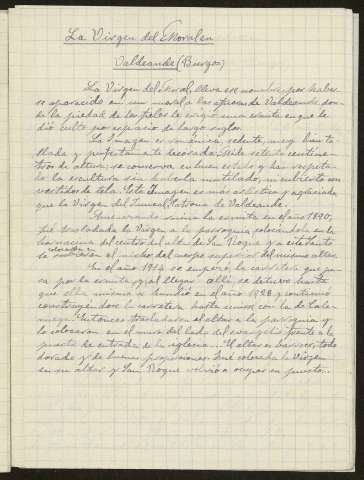 La Virgen del Moral en
Valdeande (Burgos)
La Virgen del Moral, lleva ese nombre, por haber-
se aparecido en un moral a las afueras de Valdeande, don-
de la piedad de los fieles le erigió una ermita donde le
dió culto por espacio de largos siglos.
La Imagen es románica, sedente, muy bien ta-
llada y decorada. Mide setenta centíme-
tros de altura, se conserva en buen estado y han respeta-
do la escultura sin haberla mutilado, ni cubierto con
vestidos de tela. Esta Imagen es más artística y agraciada
que la Virgen del Patrona de Valdeande.
Amenazando ruina la ermita en el año 1890,
fué trasladada la Virgen a la parroquia colocándola en la
hornacina del centro del altar de San Roque y a este Santo
le colocaron en el nicho del cuerpo superior del mismo altar.
En el año 1914 se empezó la carretera que pa-
sa por la ermita y al llegar allí, se detuvo hasta
que ella misma se hundió en el año 1928 y continuó
construyendose la carretera hasta unir con la de Cale-
ruega. Entonces trasladaron el altar a la parroquia y
lo colocaron en el muro del lado del evangelio frente a la
puerta de entrada de la iglesia... El altar es barroco, todo
dorado y de buenas proporciones. Fué colocada la Virgen
en su altar y San Roque volvió a ocupar su puesto...